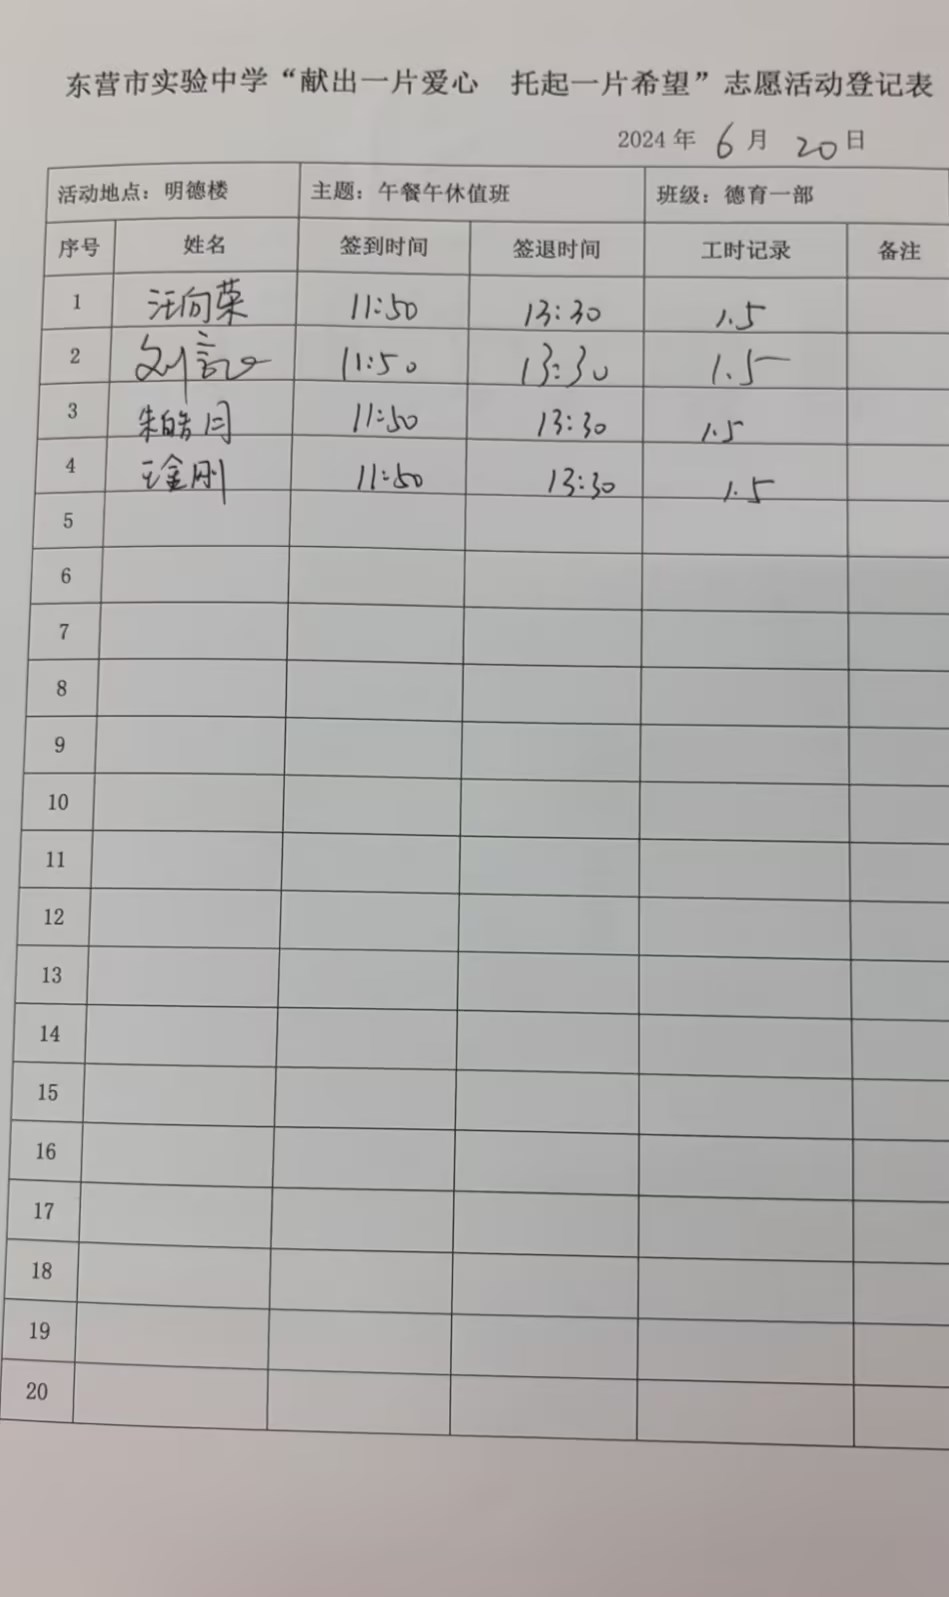 东营市实验中学“献出一片爱心 托起一片希望”志愿活动登记表
2024 年 6 月 20 日
活动地点：明德楼 主题：午餐午休值班 班级：德育一部
序号 姓名 签到时间 签退时间 工时记录 备注
1 汪向荣 11:50 13:30 1.5
2 刘 11:50 13:30 1.5
3 朱皓月 11:50 13:30 1.5
4 王金刚 11:50 13:30 1.5
5
6
7
8
9
10
11
12
13
14
15
16
17
18
19
20